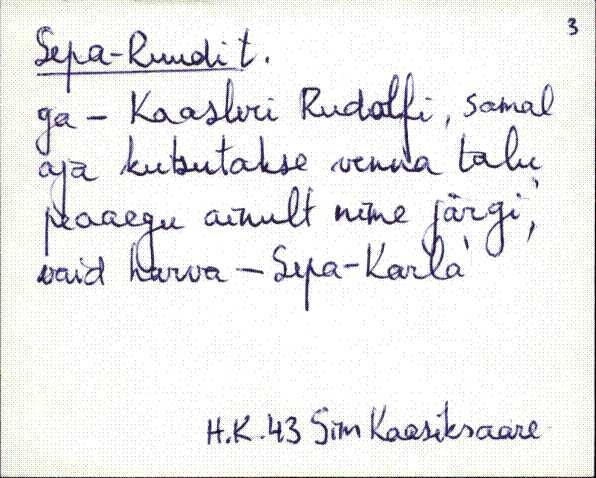 3
Sepa-Ruudi t.
ga – Kaasluri Rudolfi, samal
aja kutsutakse venna talu
peaaegu ainult nime järgi,
vaid harva – Sepa-Karla
H.K. 43 Siim Kaasiksaare